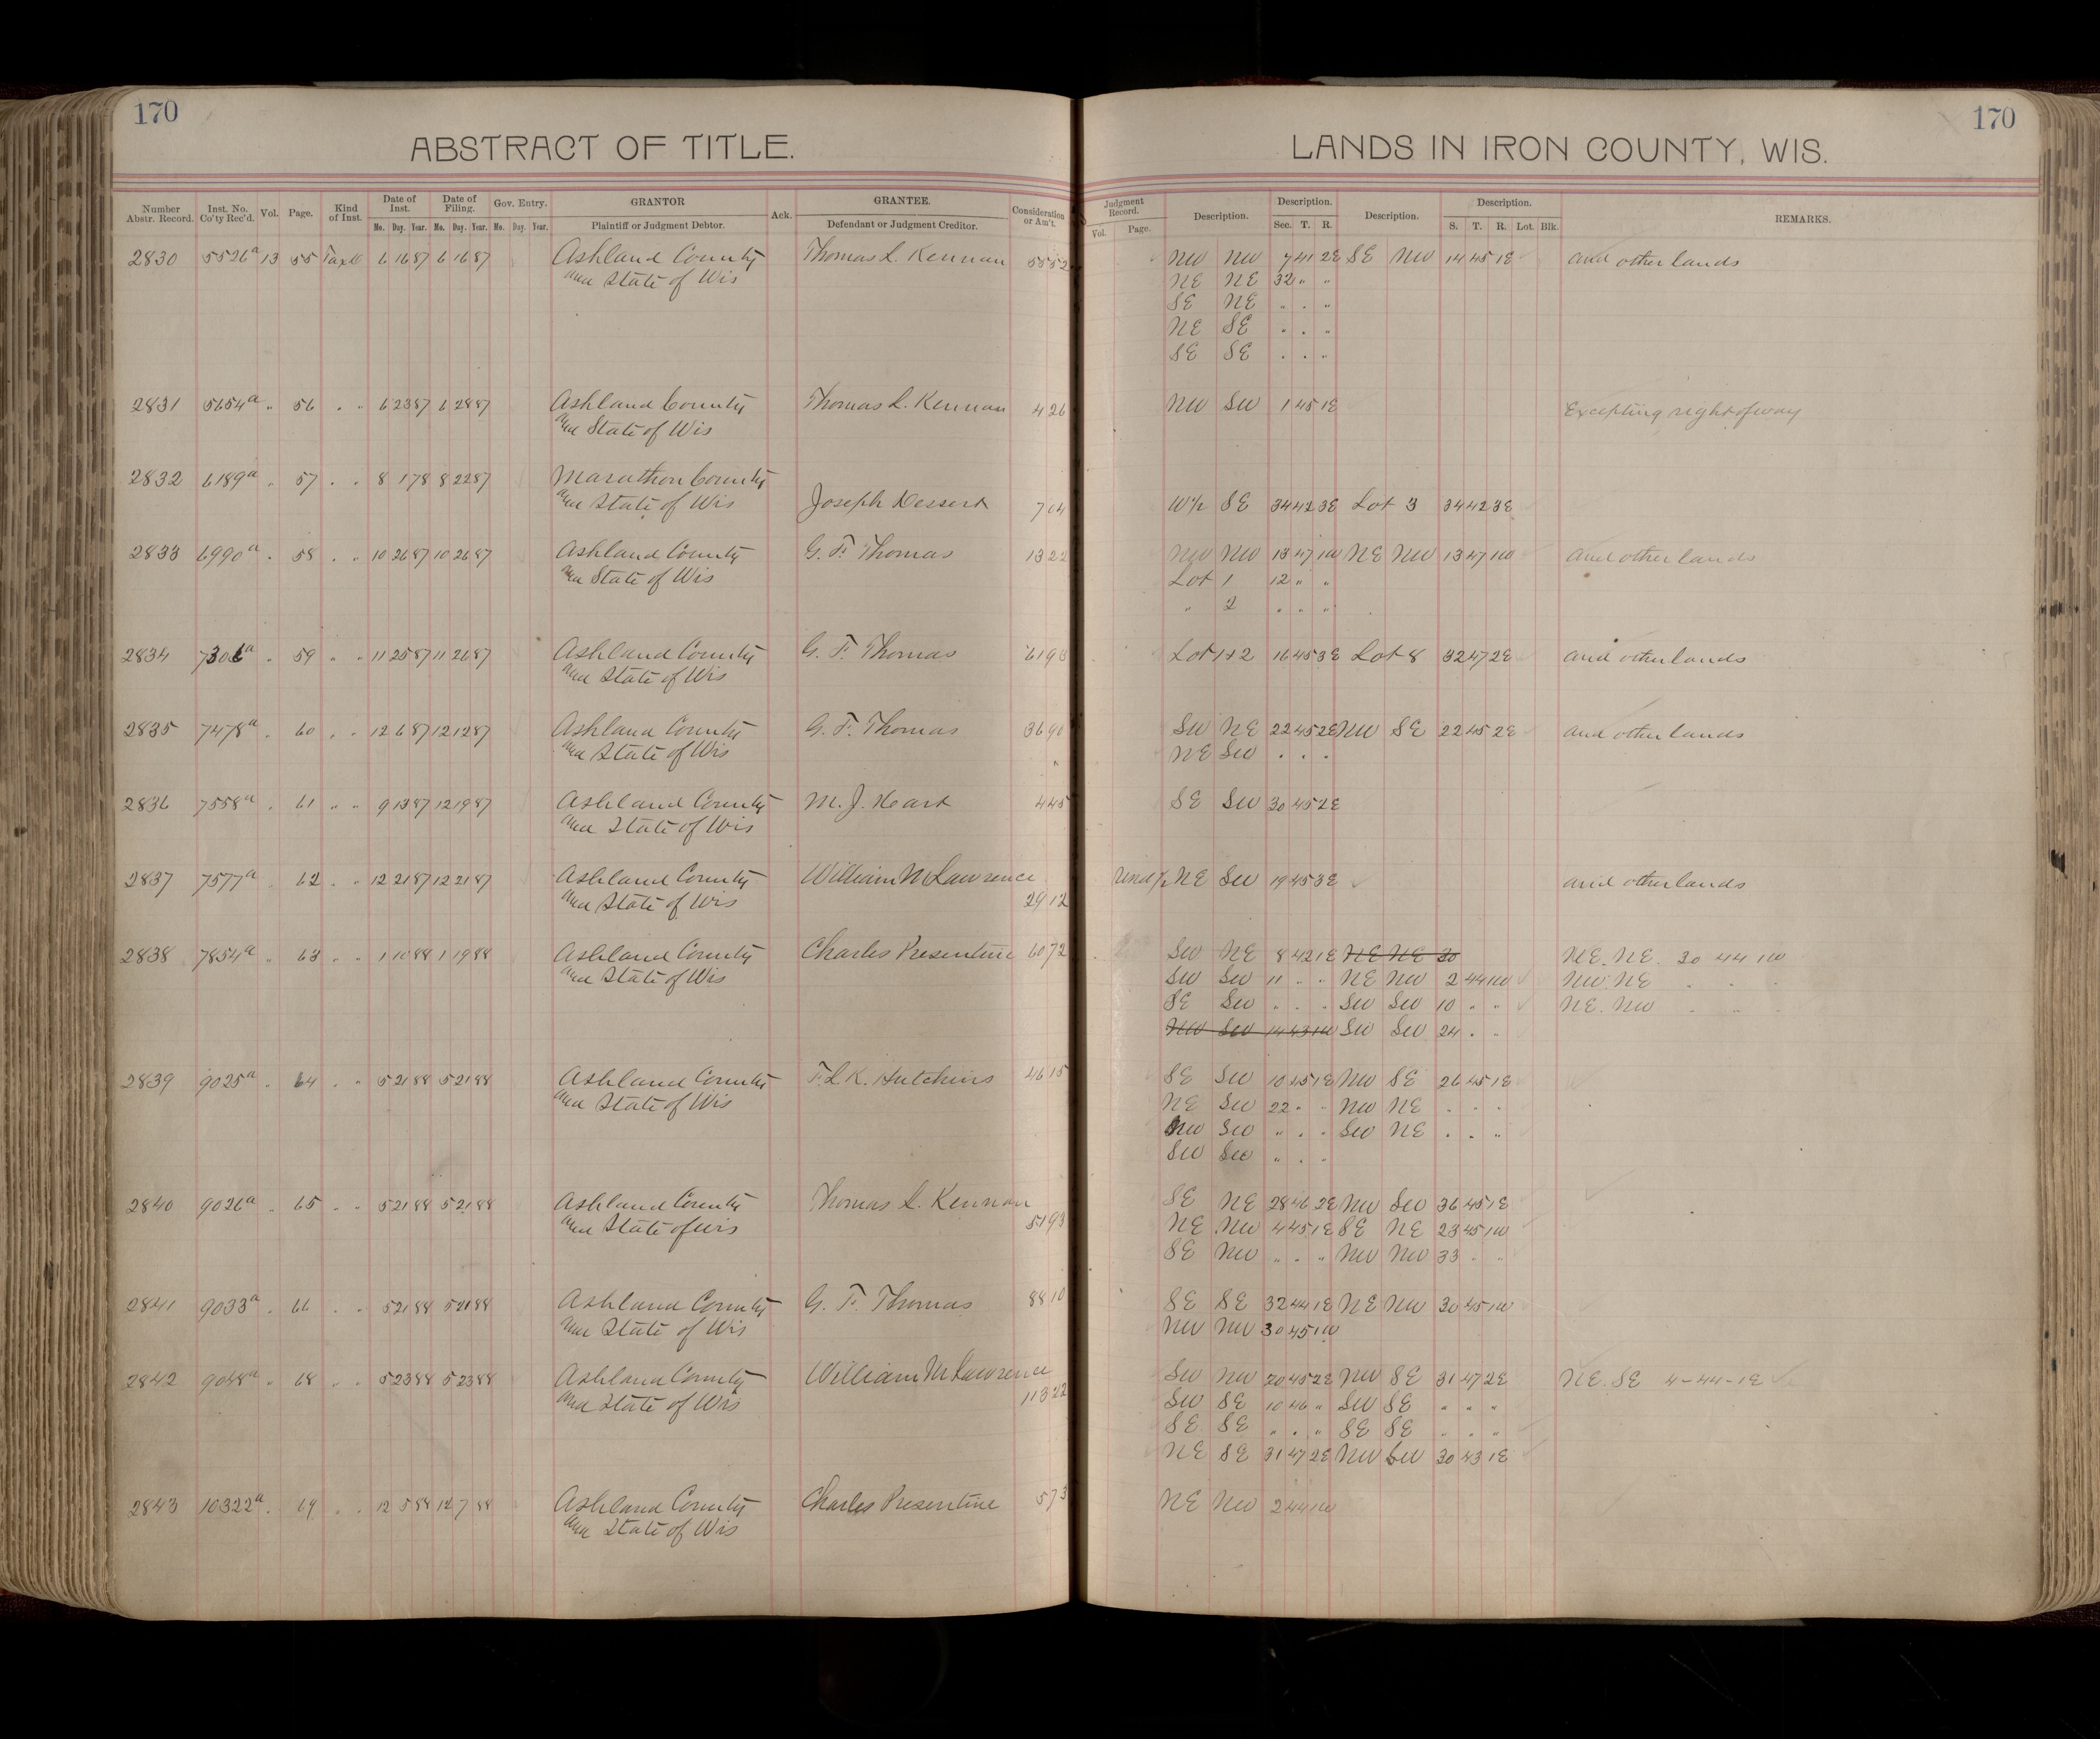 170
170
ABSTRACT OF TITLE.
LANDS IN IRON COUNTY, WIS.
Number Abstr. Record. Inst. No. Co'ty Rec'd. Vol. Page. Kind of Inst. Date of Inst. Mo. Day. Year. Date of Filing. Mo. Day. Year. Gov. Entry. Mo. Day. Year. GRANTOR Plaintiff or Judgment Debtor. Ack. GRANTEE. Defendant or Judgment Creditor. Consideration or Am't. Judgment Record. Vol. Page. Description. Description. Sec. T. R. Description. Description. S. T. R. Lot. Blk. REMARKS.
2830 5526a 13 55 Tax D 6 16 87 6 16 87 Ashland County Thomas L. Kennan 55 52 NW NW 7 41 2E SE NW 14 45 1E and other lands
and State of Wis NE NE 32 " "
SE NE " " "
NE SE " " "
SE SE " " "
2831 5654a " 56 " " 6 23 87 6 28 87 Ashland County Thomas L. Kennan 4 26 NW SW 1 45 1E Excepting right of way
and State of Wis
2832 6189a " 57 " " 8 1 78 8 22 87 Marathon County
and State of Wis Joseph Dessert 7 04 W½ SE 34 42 3E Lot 3 34 42 3E
2833 6990a " 58 " " 10 26 87 10 26 87 Ashland County G. F. Thomas 13 22 NW NW 13 47 1W NE NW 13 47 1W and other lands
and State of Wis Lot 1 12 " "
" 2 " " "
2834 7306a " 59 " " 11 25 87 11 26 87 Ashland County G. F. Thomas 61 98 Lot 1+2 16 45 3E Lot 8 32 47 2E and other lands
and State of Wis
2835 7478a " 60 " " 12 6 87 12 12 87 Ashland County G. F. Thomas 36 90 SW NE 22 45 2E NW SE 22 45 2E and other lands
and State of Wis " NE SW " " "
2836 7558a " 61 " " 9 13 87 12 19 87 Ashland County M. J. Heart 4 45 SE SW 30 45 2E
and State of Wis
2837 7577a " 62 " " 12 21 87 12 21 87 Ashland County William M Lawrence Und ½ NE SW 19 45 3E and other lands
and State of Wis 29 12
2838 7854a " 63 " " 1 10 88 1 19 88 Ashland County Charles Presentine 60 72 SW NE 8 42 1E NE NE 30 NE. NE. 30 44 1W
and State of Wis SW SW 11 " " NE NW 2 44 1W NW. NE " " "
SE SW " " " SW SW 10 " " NE. NW " " "
NW SW 14 43 1W SW SW 24 " "
2839 9025a " 64 " " 5 21 88 5 21 88 Ashland County F. L K. Hutchins 46 15 SE SW 10 45 1E NW SE 26 45 1E
and State of Wis NE SW 22 " " NW NE " " "
NW SW " " " SW NE " " "
SW SW " " "
2840 9026a " 65 " " 5 21 88 5 21 88 Ashland County Thomas L. Kennan SE NE 28 46 2E NW SW 36 45 1E
and State of Wis 51 93 NE NW 4 45 1E SE NE 23 45 1W
SE NW " " " NW NW 33 " "
2841 9033a " 66 " " 5 21 88 5 21 88 Ashland County G. F. Thomas 88 10 SE SE 32 44 1E NE NW 30 45 1W
and State of Wis NW NW 30 45 1W
2842 9048a " 68 " " 5 23 88 5 23 88 Ashland County William M Lawrence SW NW 20 45 2E NW SE 31 47 2E NE. SE 4-44-1E
and State of Wis 113 22 SW SE 10 46 " SW SE " " "
SE SE " " " SE SE " " "
NE SE 31 47 2E NW SW 30 43 1E
2843 10322a " 69 " " 12 5 88 12 7 88 Ashland County Charles Presentine 5 73 NE NW 2 44 1W
and State of Wis